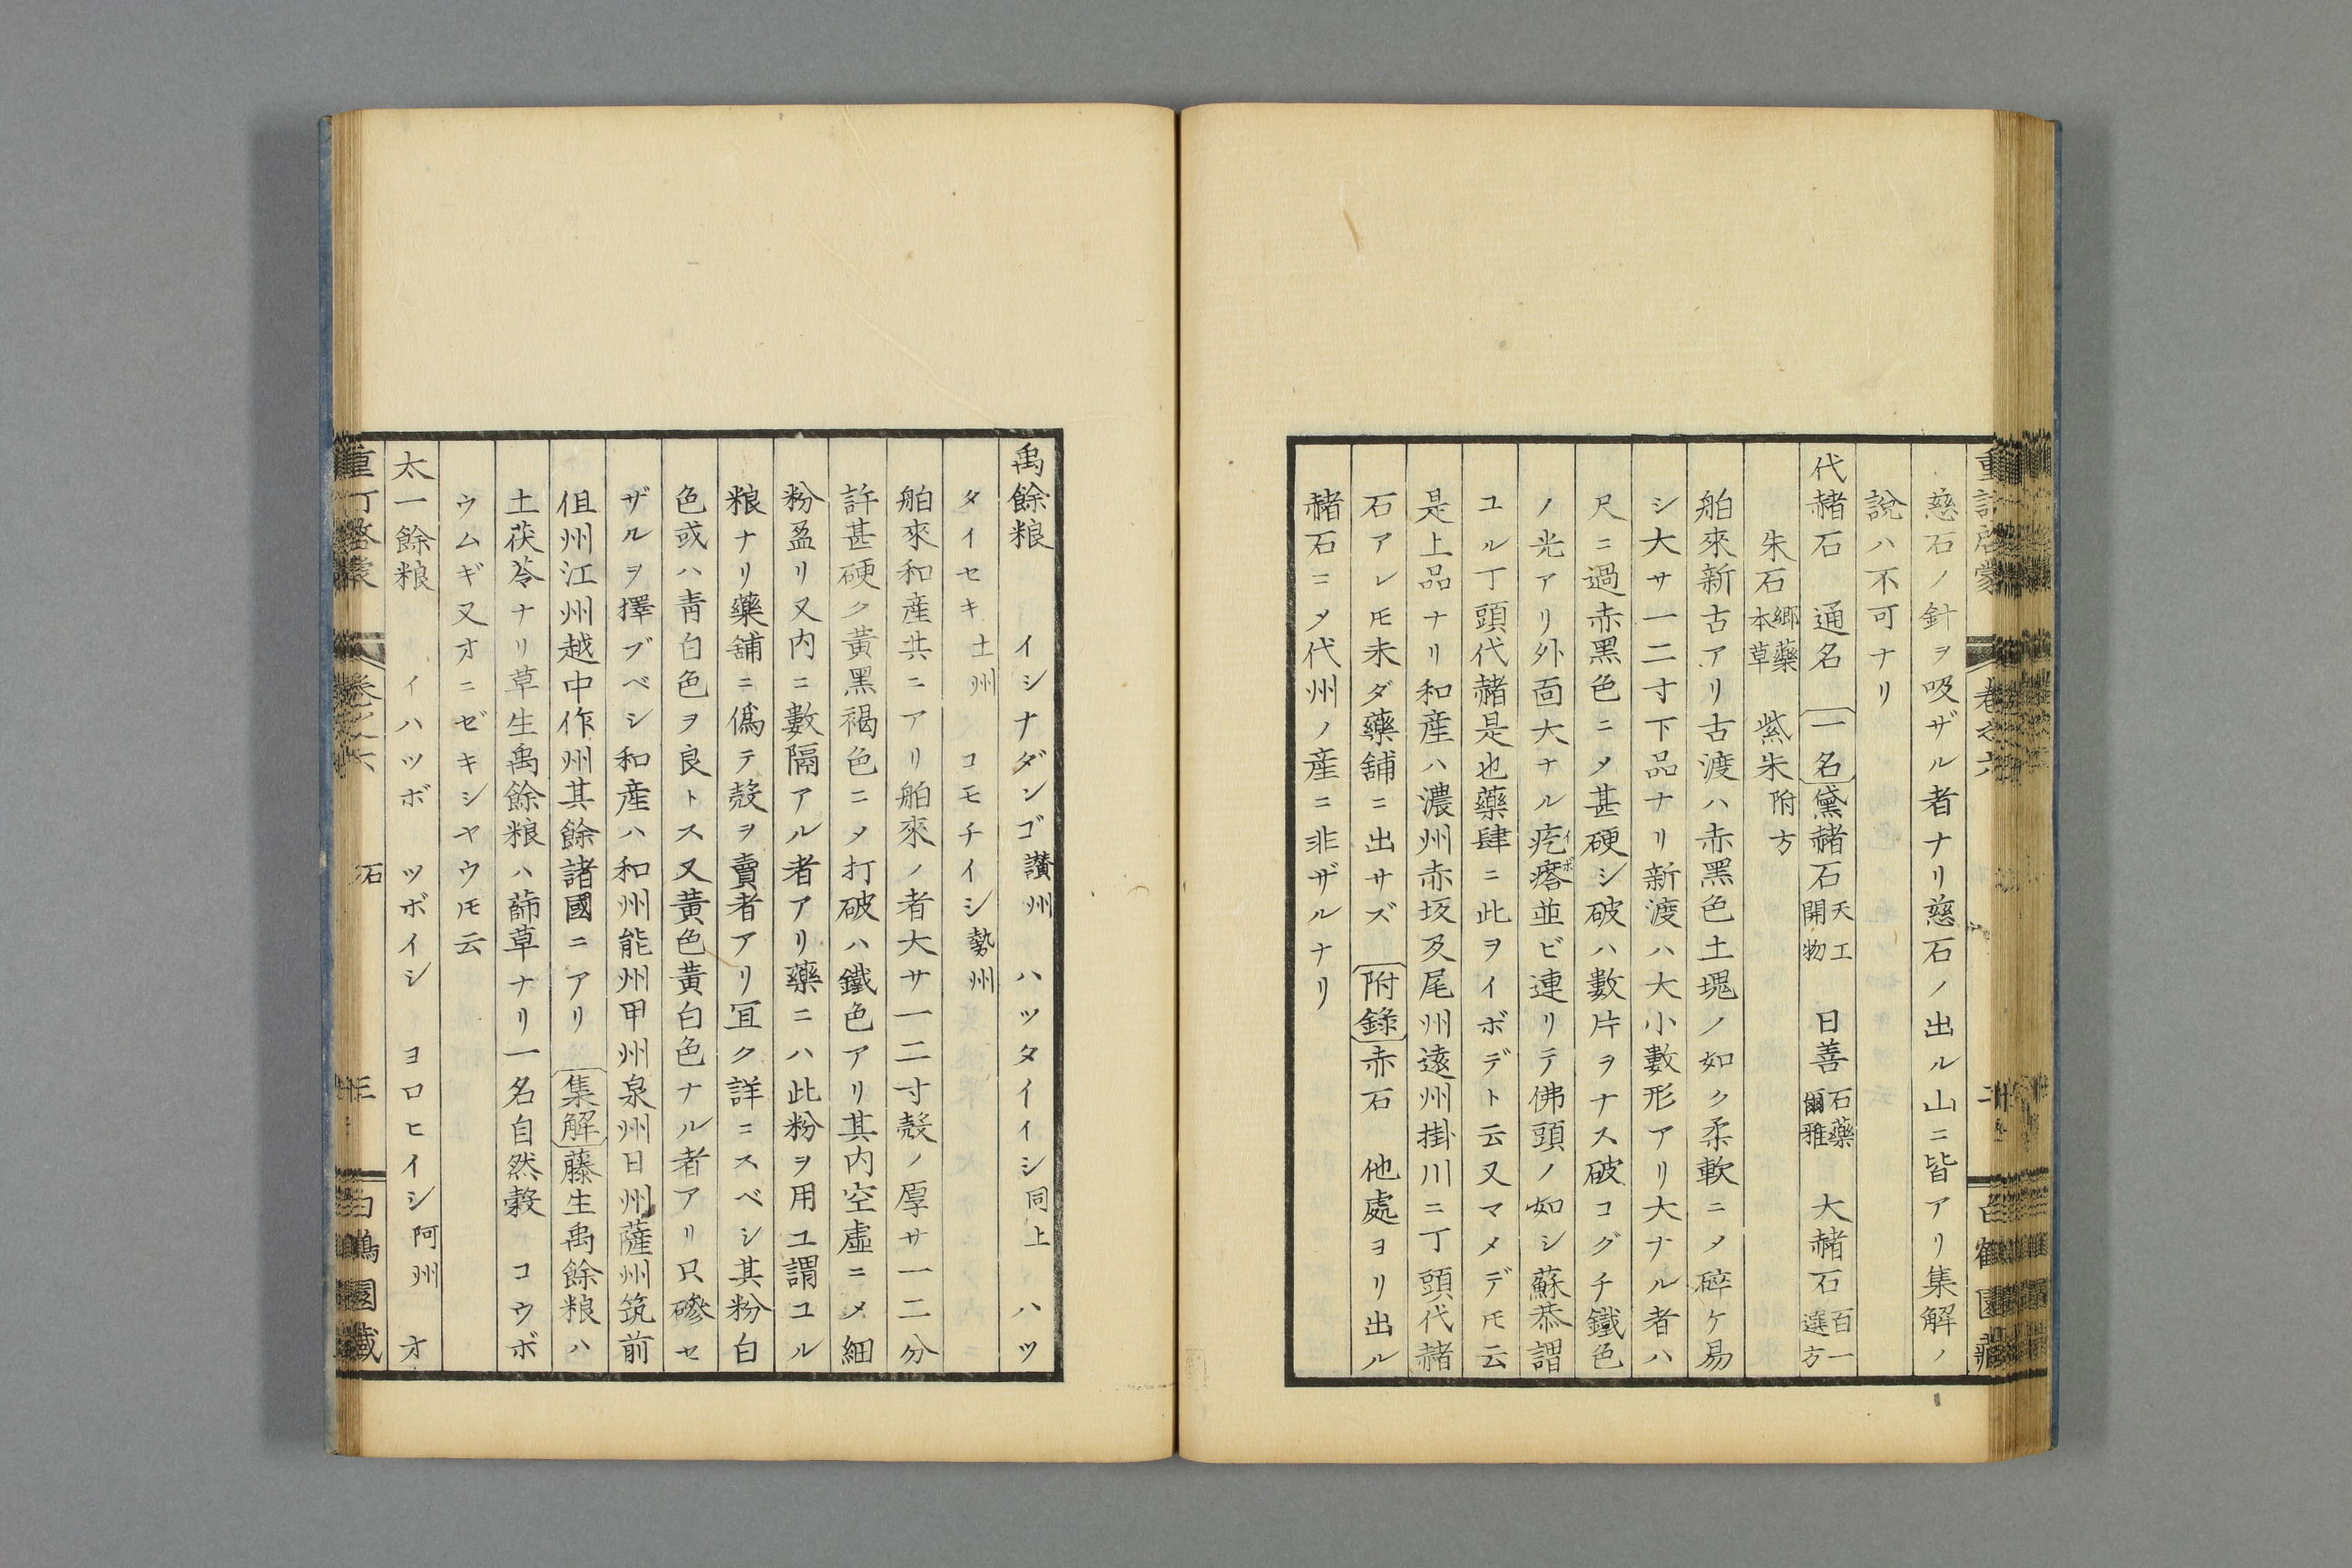 重訂啓蒙 卷之六
慈石ノ針ヲ吸ザル者ナリ慈石ノ出ル山ニ皆アリ集解ノ
說ハ不可ナリ
代赭石 通名 一名 黛赭石 天工開物 日善 石藥爾雅 大赭石 百一選方
朱石 鄉藥本草 紫朱 附方
舶來新古アリ古渡ハ赤黑色土塊ノ如ク柔軟ニメ碎ケ易
シ大サ一二寸下品ナリ新渡ハ大小數形アリ大ナル者ハ
尺ニ過赤黑色ニメ甚硬シ破ハ數片ヲナス破コグチ鐵色
ノ光アリ外面大ナル疙瘩イボ並ビ連リテ佛頭ノ如シ蘇恭謂
ユル丁頭代赭是也藥肆ニ此ヲイボデト云又マメデ𪜈云
是上品ナリ和産ハ濃州赤坂及尾州遠州掛川ニ丁頭代赭
石アレ𪜈未ダ藥舖ニ出サズ 附錄 赤石 他處ヨリ出ル
赭石ニメ代州ノ産ニ非ザルナリ
禹餘粮 イシナダンゴ 讃州 ハツタイイシ 同上 ハツ
タイセキ 土州 コモチイシ 勢州
舶來和産共ニアリ舶來ノ者大サ一二寸殼ノ厚サ一二分
許甚硬ク黃黑褐色ニメ打破ハ鐵色アリ其内空虛ニメ細
粉盈リ又内ニ數隔アル者アリ藥ニハ此粉ヲ用ユ謂ユル
粮ナリ藥舖ニ僞テ殼ヲ賣者アリ冝ク詳ニスベシ其粉白
色或ハ靑白色ヲ良トス又黃色黃白色ナル者アリ只磣セ
ザルヲ擇ブベシ和産ハ和州能州甲州泉州日州薩州筑前
但州江州越中作州其餘諸國ニアリ 集解 藤生禹餘粮ハ
土茯苓ナリ草生禹餘粮ハ蒒草ナリ一名自然穀 コウボ
ウムギ又オニゼキシヤウ𪜈云
太一餘粮 イハツボ ツボイシ ヨロヒイシ 阿州 オ
重訂啓蒙 卷之六 石